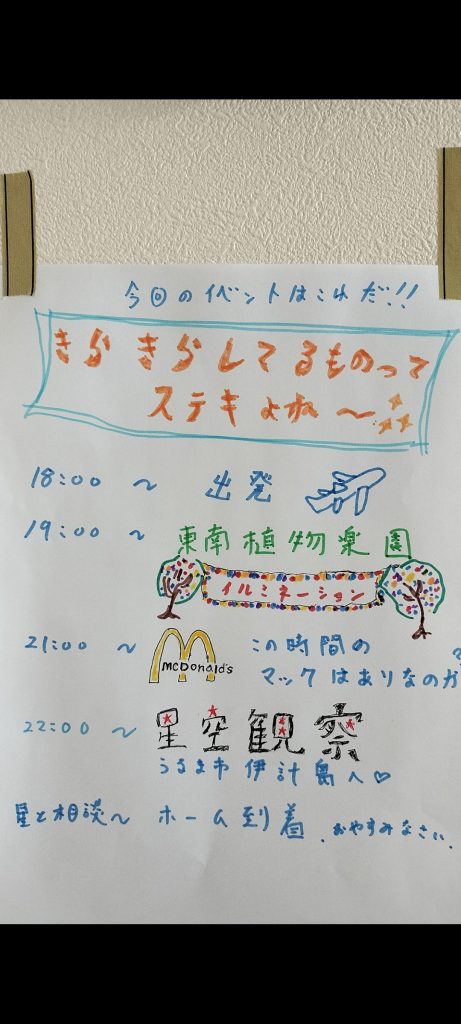 今回のイベントはこれだ!!
きらきらしてるものって
ステキよね〜
18:00 〜 出発
19:00 〜 東南植物楽園
イルミネーション
21:00 〜 McDonald's この時間の
マックはありなのか
22:00 〜 星空観察
うるま市 伊計島へ♡
星と相談〜 ホーム到着 .おやすみなさい.